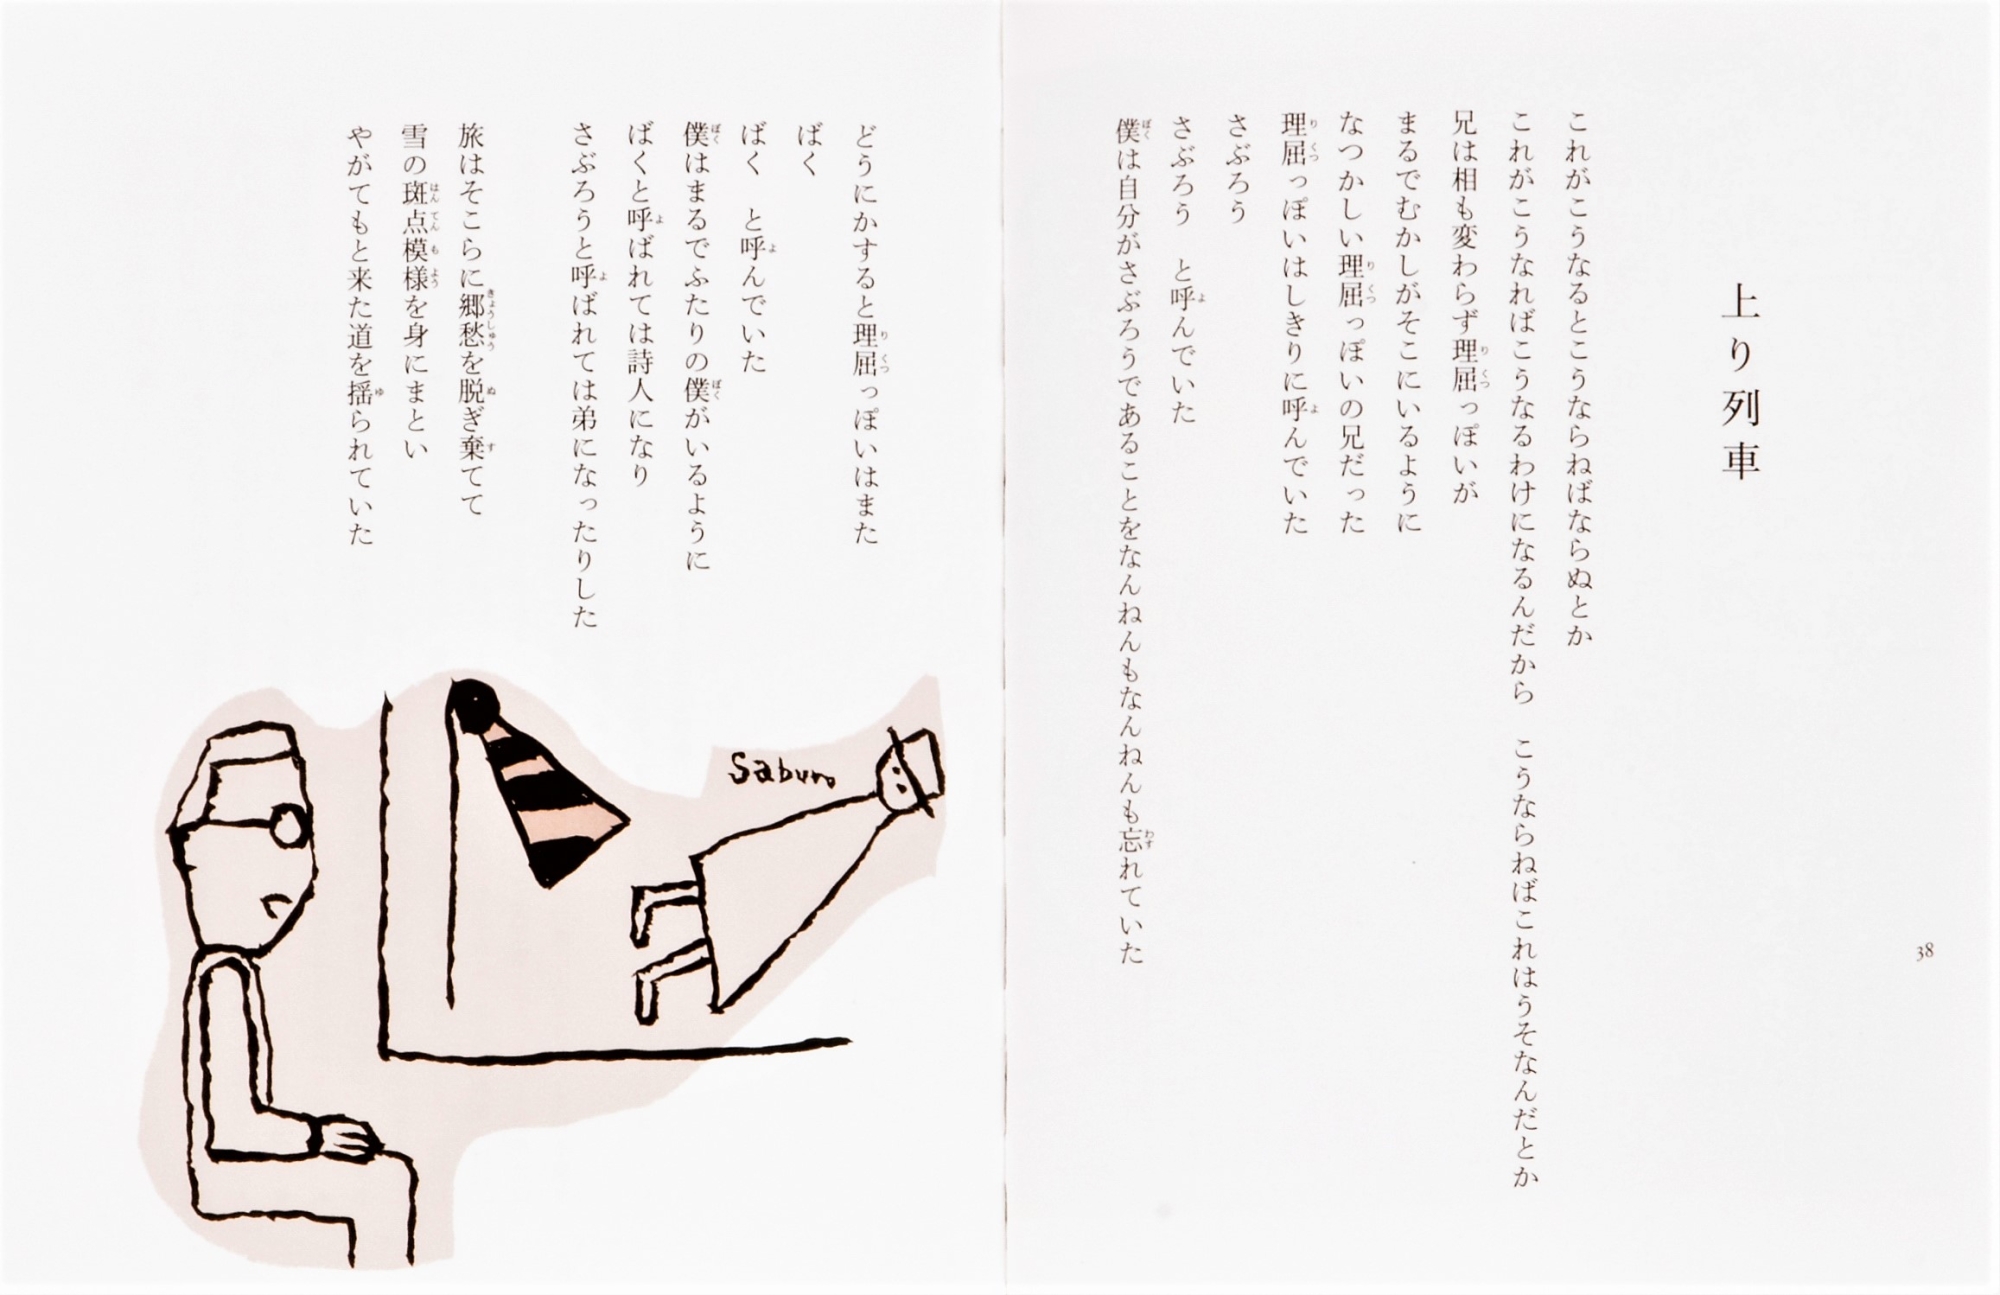 上り列車
これがこうなるとこうならねばならぬとか
これがこうなればこうなるわけになるんだから　こうならねばこれはうそなんだとか
兄は相も変わらず理屈っぽいが
まるでむかしがそこにいるように
なつかしい理屈っぽいの兄だった
理屈っぽいはしきりに呼んでいた
さぶろう
さぶろう　と呼んでいた
僕は自分がさぶろうであることをなんねんもなんねんも忘れていた
38
どうにかすると理屈っぽいはまた
ばく
ばく　と呼んでいた
僕はまるでふたりの僕がいるように
ばくと呼ばれては詩人になり
さぶろうと呼ばれては弟になったりした
旅はそこらに郷愁を脱ぎ棄てて
雪の斑点模様を身にまとい
やがてもと来た道を揺られていた
Saburo